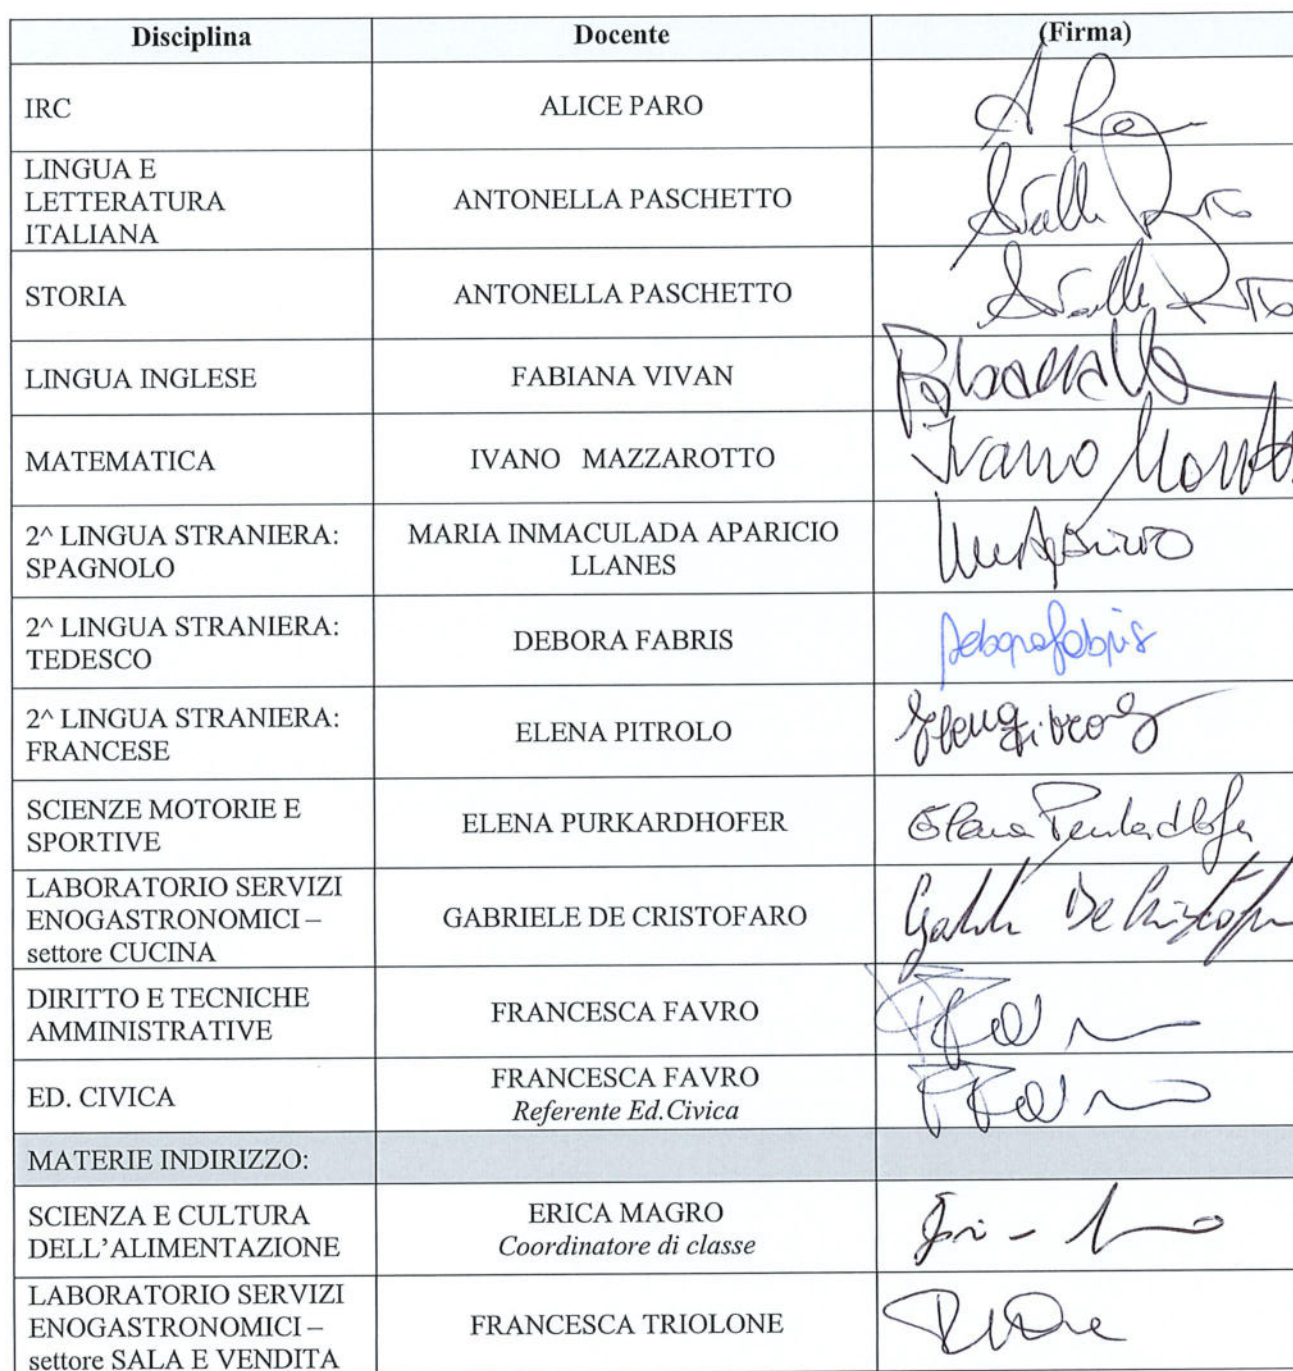 Disciplina Docente (Firma)
IRC ALICE PARO
LINGUA E
LETTERATURA
ITALIANA
ANTONELLA PASCHETTO
STORIA ANTONELLA PASCHETTO
LINGUA INGLESE FABIANA VIVAN
MATEMATICA IVANO MAZZAROTTO Ivano
2^ LINGUA STRANIERA:
SPAGNOLO
MARIA INMACULADA APARICIO
LLANES
2^ LINGUA STRANIERA:
TEDESCO
DEBORA FABRIS
Debora Fabris
2^ LINGUA STRANIERA:
FRANCESE
ELENA PITROLO
SCIENZE MOTORIE E
SPORTIVE
ELENA PURKARDHOFER
Elena Purkardhofer
LABORATORIO SERVIZI
ENOGASTRONOMICI –
settore CUCINA
GABRIELE DE CRISTOFARO
DIRITTO E TECNICHE
AMMINISTRATIVE
FRANCESCA FAVRO
ED. CIVICA
FRANCESCA FAVRO
Referente Ed.Civica
MATERIE INDIRIZZO:
SCIENZA E CULTURA
DELL'ALIMENTAZIONE
ERICA MAGRO
Coordinatore di classe
LABORATORIO SERVIZI
ENOGASTRONOMICI –
settore SALA E VENDITA
FRANCESCA TRIOLONE